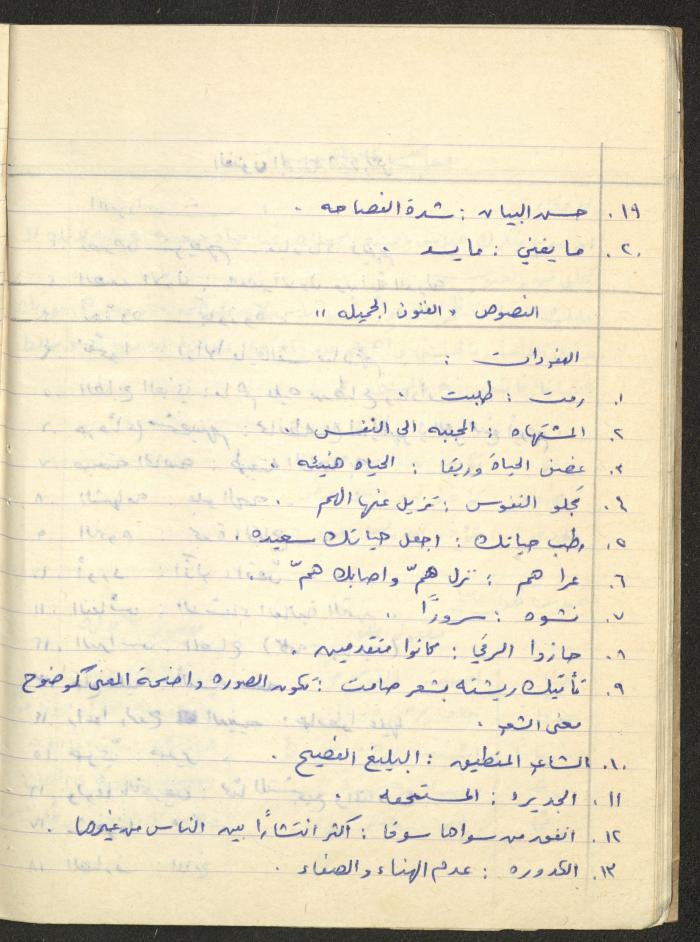 ١٩. حسن البيان : شدة الفصاحه .
٢٠. ما يغني : ما يسد .
النصوص " الفنون الجميله "
المفردات :
١. رمت : طلبت .
٢. المشتهاه : المحببه الى النفس
٣. غصن الحياة وريقا : الحياه هنيئه .
٤. تجلو النفوس : تزيل عنها الهم .
٥. رطب حياتك : اجعل حياتك سعيده .
٦. عرا هم : نزل همّ واصابك همّ
٧. نشوه : سرورًا .
٨. حازوا الرقي : كانوا متقدمين .
٩. تأتيك ريشته بشعر صامت : تكون الصوره واضحة المعنى كوضوح
معنى الشعر .
١٠. الشاعر المنطيق : البليغ الفصيح .
١١. الجديره : المستحقه .
١٢. انفق من سواها سوقا : أكثر انتشارًا بين الناس من غيرها .
١٣. الكدوره : عدم الهناء والصفاء .